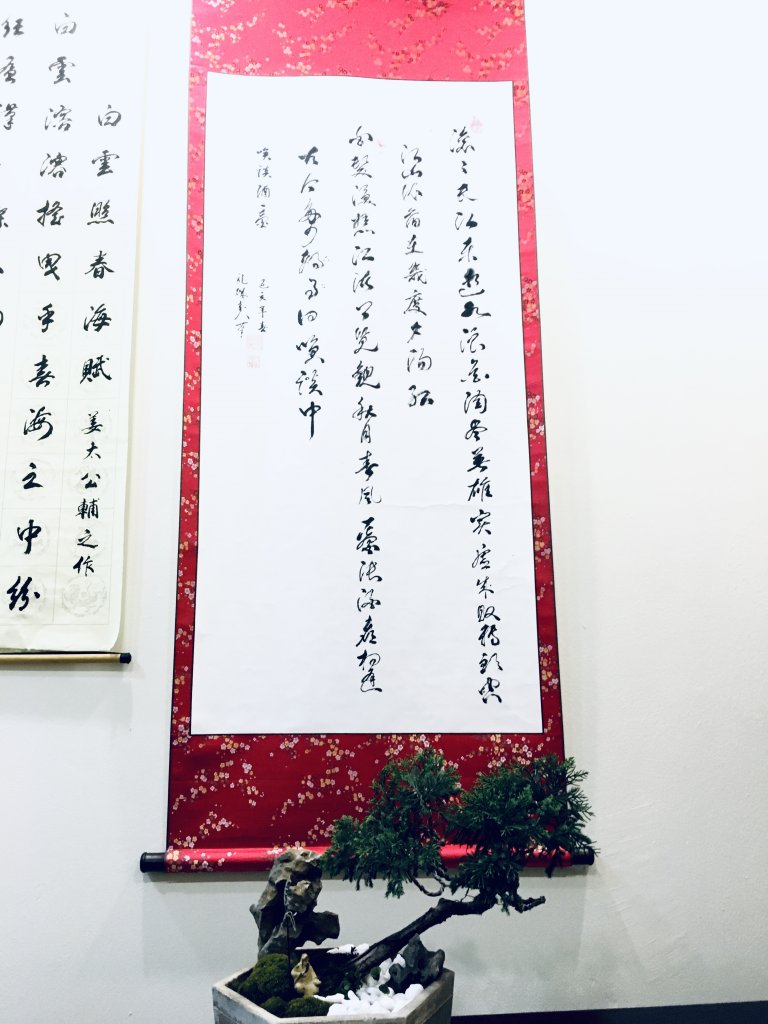 白雲照春海賦 姜公輔之作
白雲溶溶搖曳乎春海之中紛
滾々長江東逝水浪花淘盡英雄实虛成敗轉頭空
江山依舊在幾度夕陽紅
白髮漁樵江渚上覽觀秋月春風一壺濁酒喜相逢
古今多少事笑談中
笑談酒
己亥年春